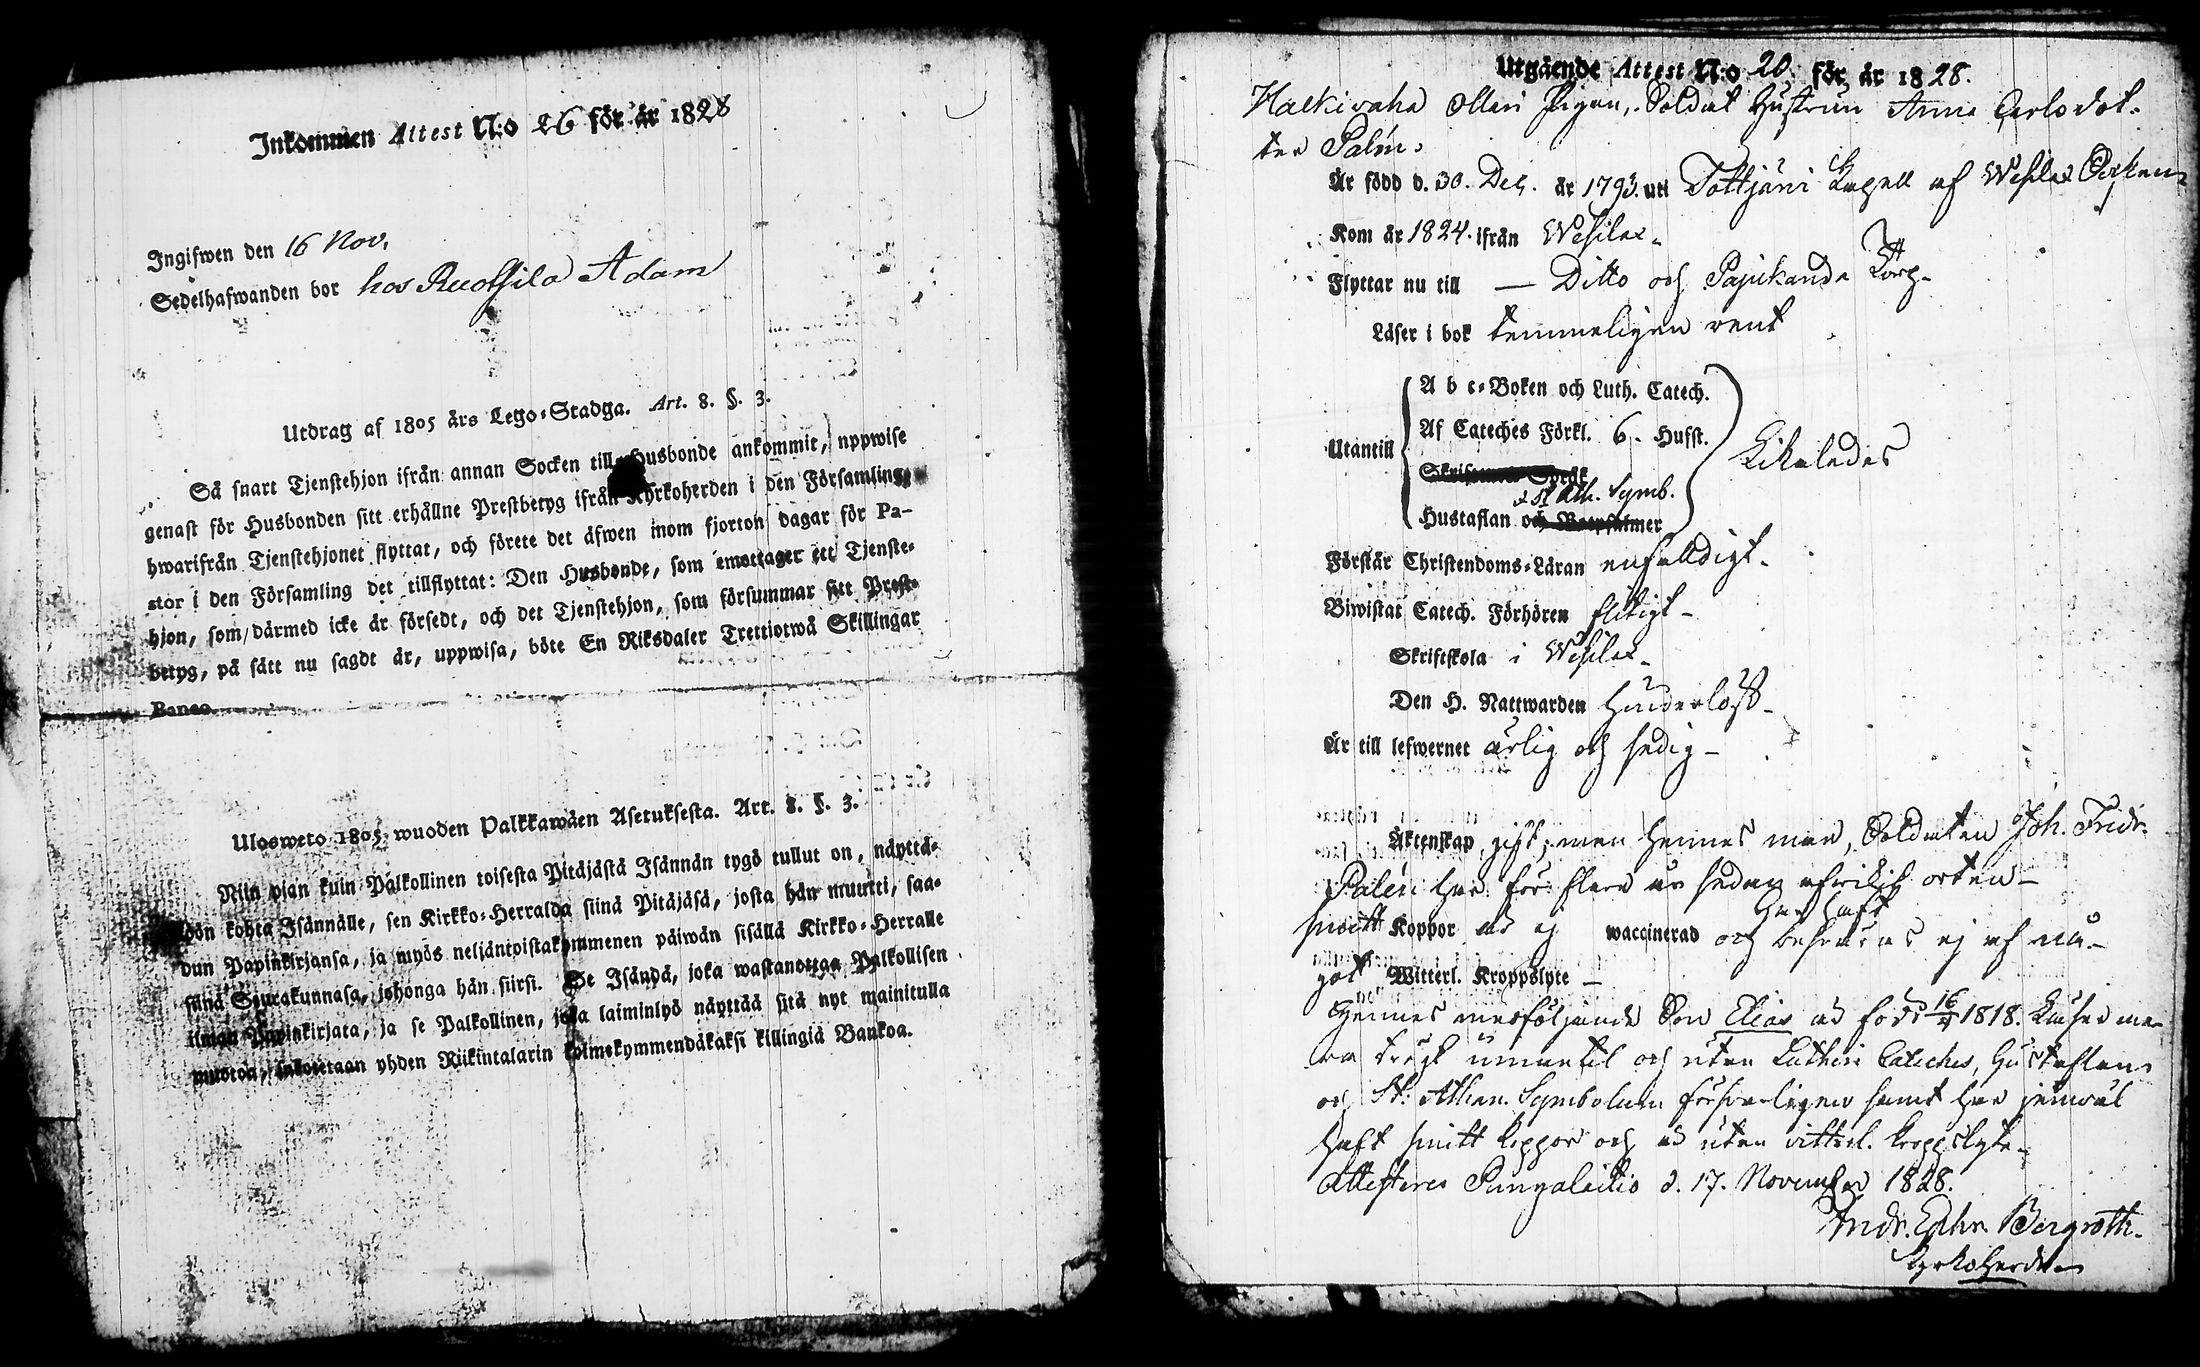 Inkommen Attest N:o 26 för år 1828
Ingifwen den 16 Nov.
Sedelhafwanden bor hos Ruottila Adam
Utdrag af 1805 års Lego-Stadga. Art. 8. §. 3.
Så snart Tjenstehjon ifrån annan Socken till Husbonde ankommit, uppwise
genast för Husbonden sitt erhållne Prestbetyg ifrån Kyrkoherden i den Församling,
hwarifrån Tjenstehjonet flyttat, och förete det äfwen inom fjorton dagar för Pa-
stor i den Församling det tillflyttat: Den Husbonde, som emottager ett Tjenste-
hjon, som därmed icke är försedt, och det Tjenstehjon, som försummar sitt Prest-
betyg, på sätt nu sagdt är, uppwisa, böte En Riksdaler Trettiotwå Skillingar
Banco.
Ulosweto 1805 wuoden Palkkawäen Asetuksesta. Art. 8. §. 3.
Niin pian kuin Palkollinen toisesta Pitäjästä Isännän tygö tullut on, näyttä-
köön kohta Isännälle, sen Kirkko-Herralda siinä Pitäjäsä, josta hän muutti, saa-
dun Papinkirjansa, ja myös neljäntoistakymmenen päiwän sisällä Kirkko-Herralle
siinä Seurakunnasa, johonga hän siirsi. Se Isändä, joka wastanottaa Palkollisen
ilman Papinkirjata, ja se Palkollinen, joka laiminlyö näyttää sitä nyt mainitulla
muotoa, sakotetaan yhden Riikintalarin kolmekymmendäkaksi killingiä Bankoa.
Utgående Attest N:o 20. för år 1828.
Halkivaha Olleri Pigan, Soldat Hustrun Anna Carlsdot-
ter Palén.
Är född d. 30. Dec. år 1793. uti Tottjärvi Kapell af Wesilax Socken
Kom år 1824. ifrån Wesilax.
Flyttar nu till — Ditto och Pajukanda Torp.
Läser i bok temmeligen rent
Utantill
A b c-Boken och Luth. Catech.
Af Cateches Förkl. 6. Hufst.
St Ath. Symb.
Hustaflan och
Likaledes
Förstår Christendoms-Läran enfaldigt.
Biwistat Catech. Förhören flitigt -
Skriftskola i Wesilax -
Den H. Nattwarden hinderlöst -
Är till lefwernet ärlig och sedig -
Äktenskap gift, men hennes man, Soldaten Joh. Fridr.
Palén har för flere år sedan afvikit orten -
haft
Koppor är ej waccinerad och besväras ej af nå-
got Witterl. Kroppslyte -
Hennes medföljande Son Elias är född 16/4 1818. Läser me-
ra trögt innantil och utan Lutheri Cateches, Hustaflan
och St. Athan. Symbolum försvarligen samt har jemväl
haft smitt koppor och är utan vitterl. kroppslyte.
Attesteres Pungalaitio d. 17. November 1828.
Andr. Ephr. Bergroth.
Kyrkoherde